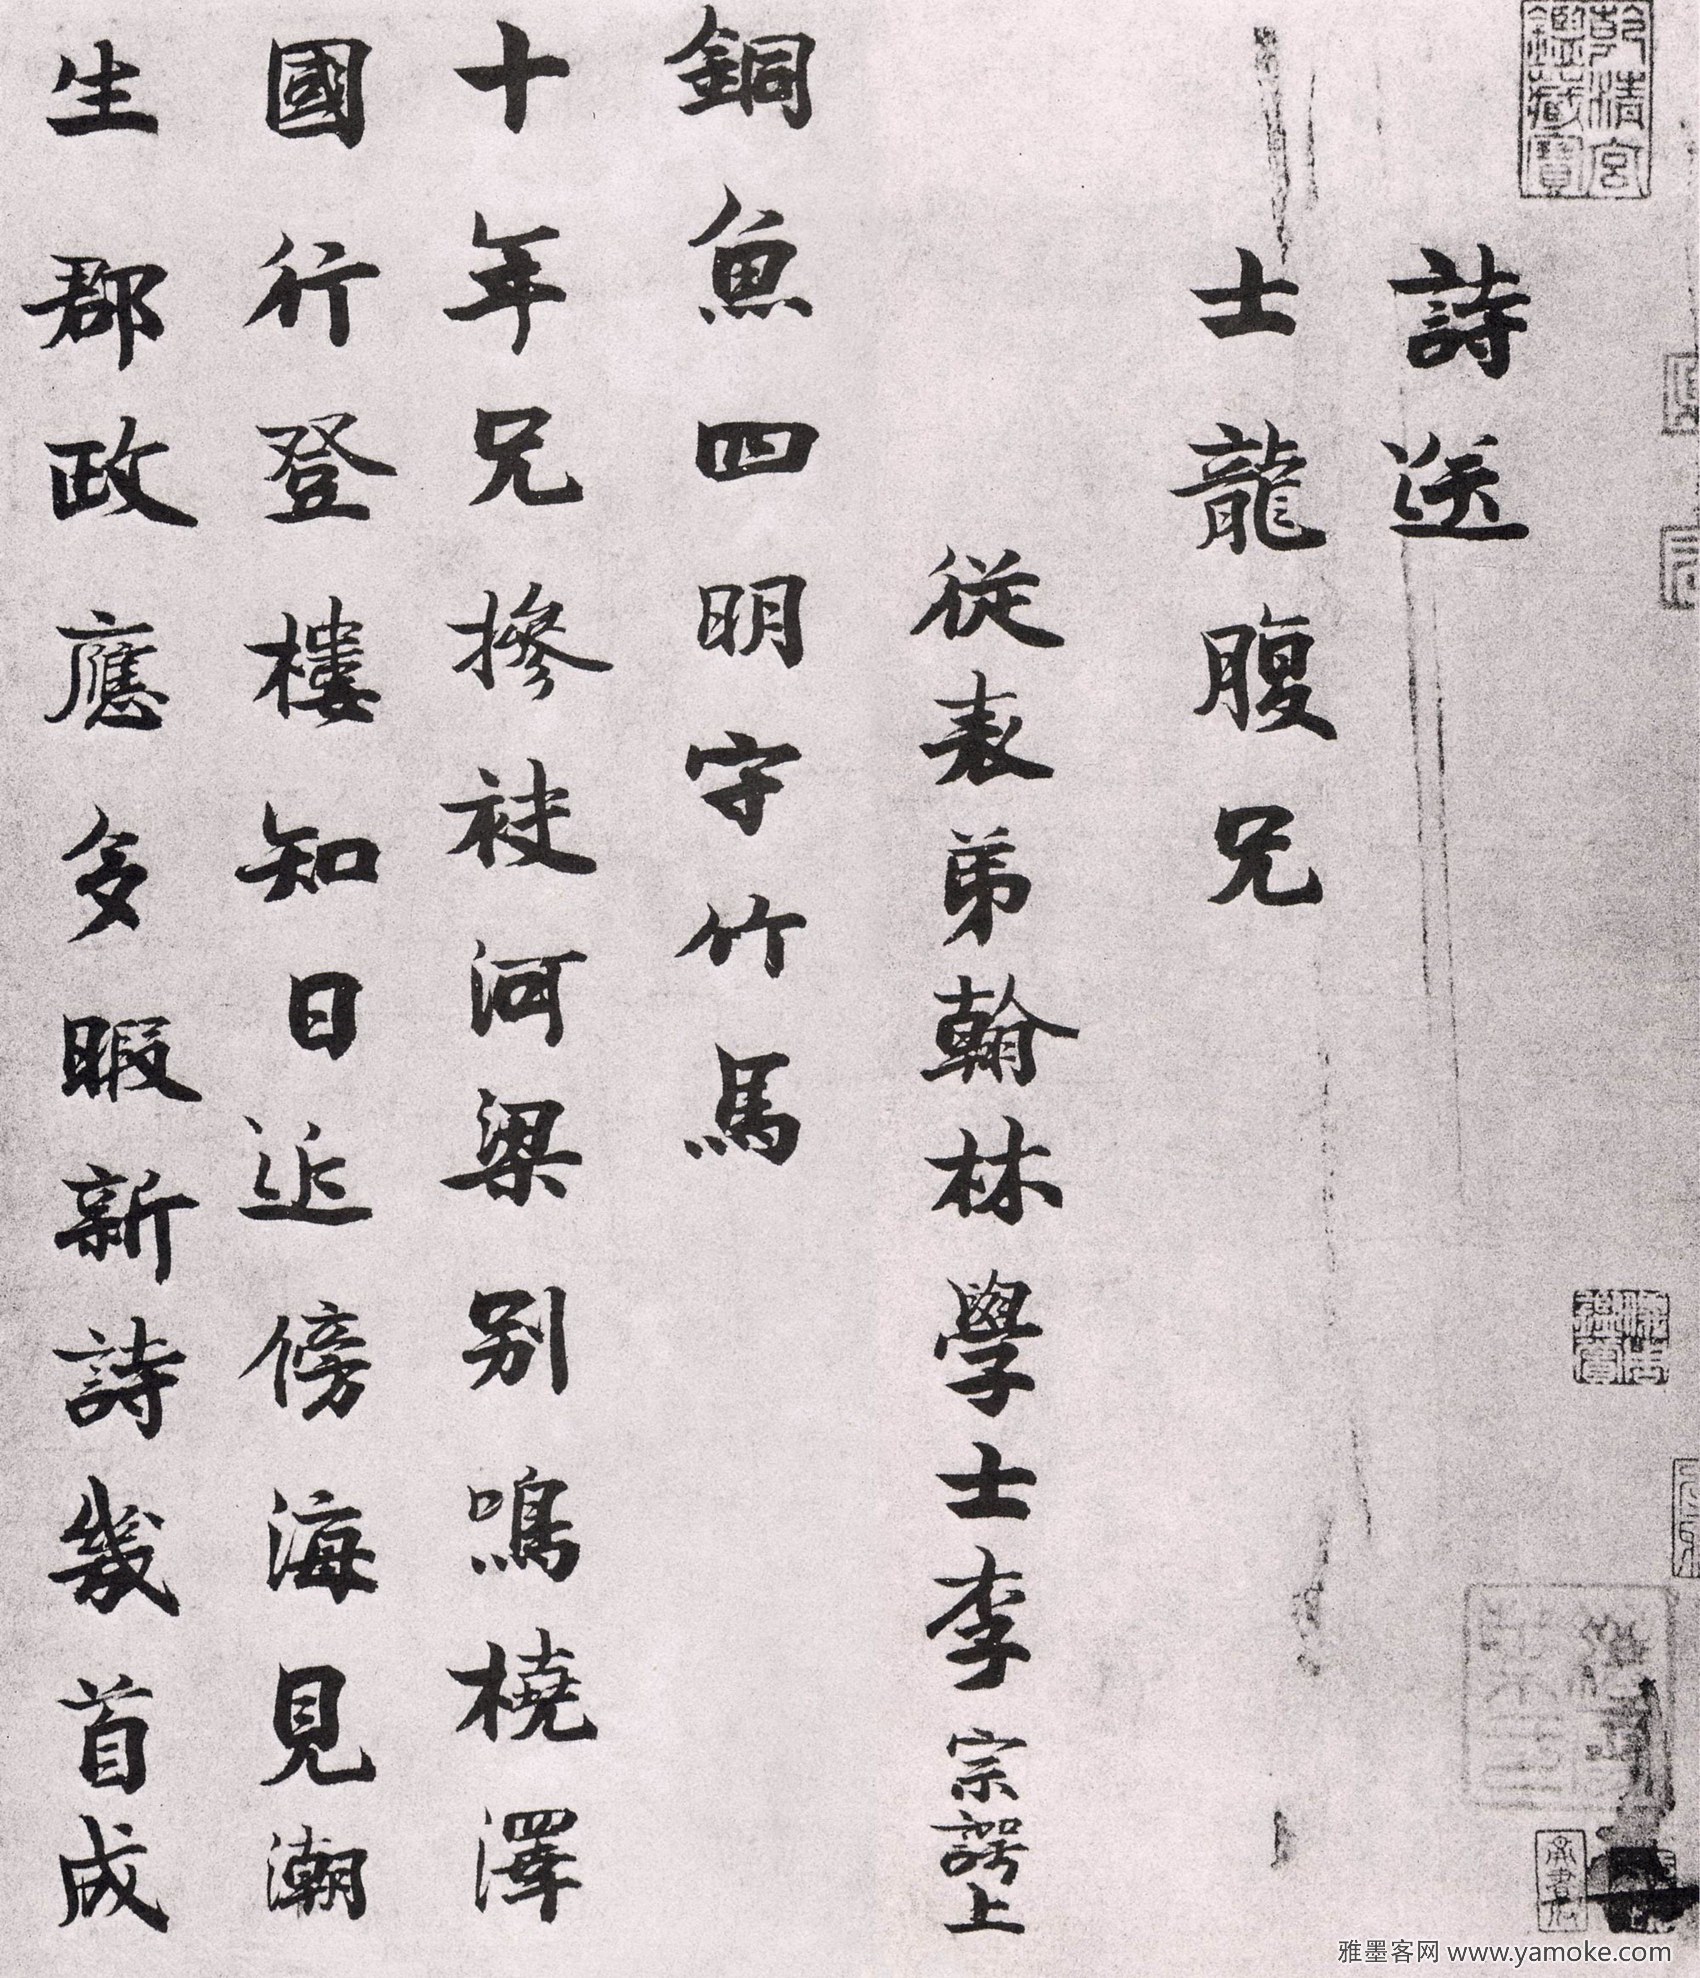 詩送
士龍腹兄
從表弟翰林學士李宗諤上
銅魚四明守竹馬
十年兄摻袂河梁別鳴橈澤
國行登樓知日近傍海見潮
生郡政應多暇新詩幾首成
乾清宮鑑藏寶
雅墨客网 www.yamoke.com